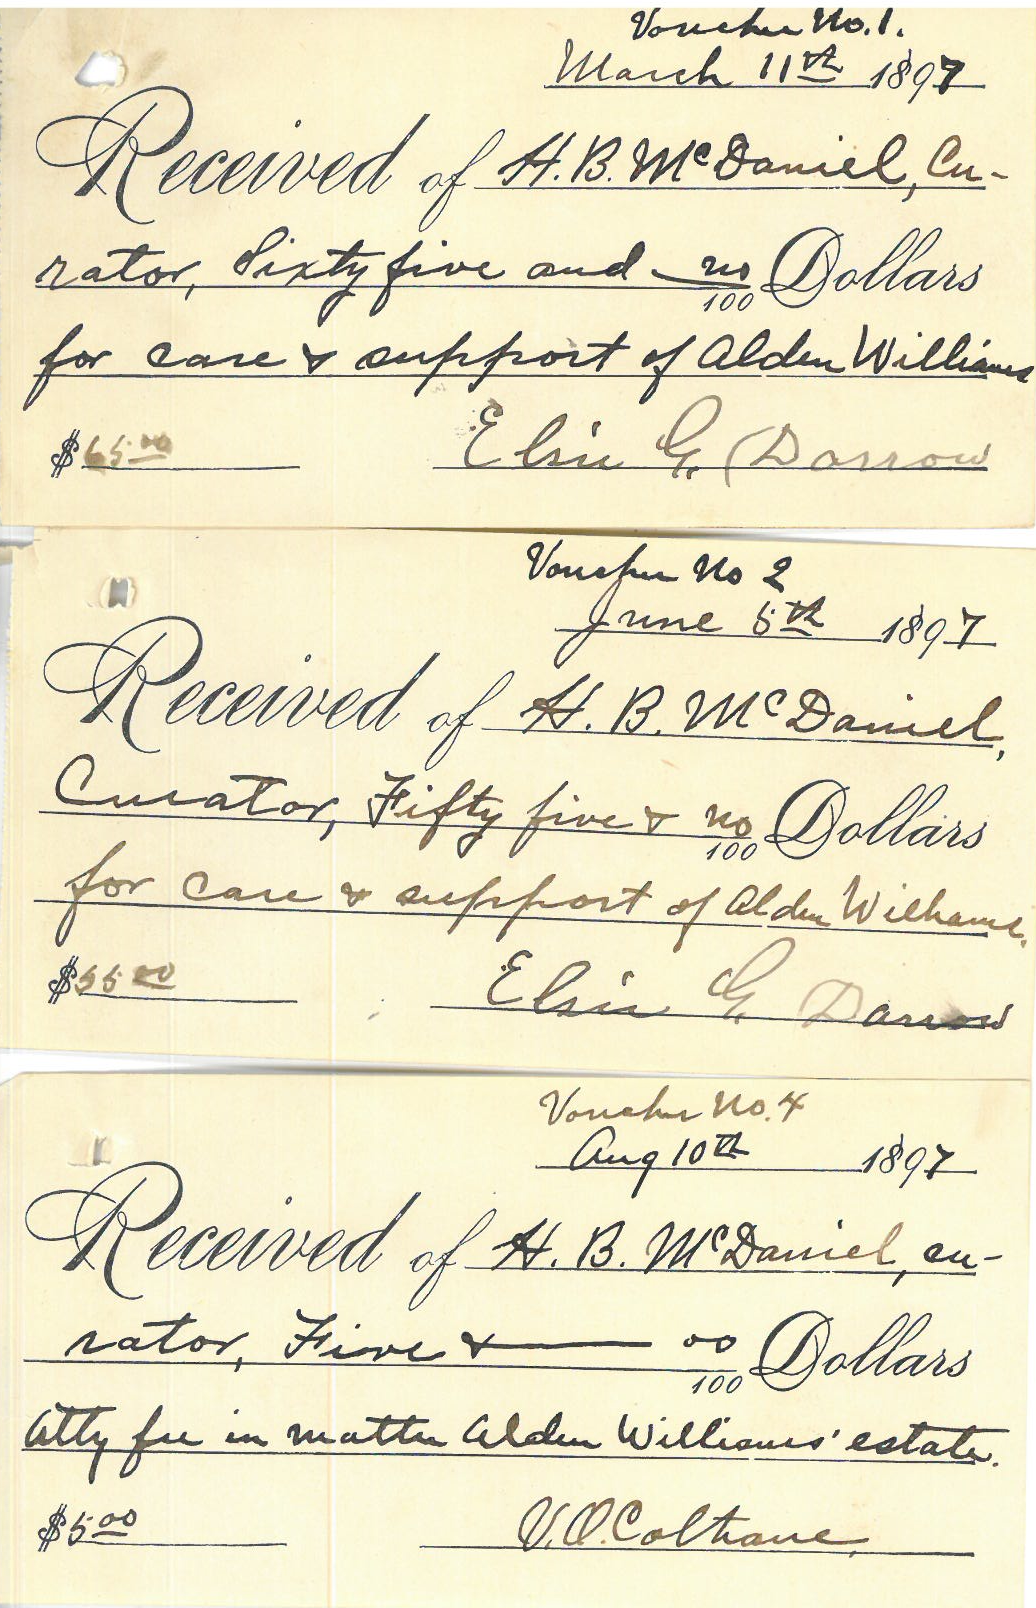 Voucher No. 1.
March 11th 1897
Received of H. B. McDaniel, Cu-
rator, Sixty five and no/100 Dollars
for care & support of Alden Williams
$65.00 Elsie G. Darrow
Voucher No 2
June 5th 1897
Received of H. B. McDaniel,
Curator, Fifty five & no/100 Dollars
for care & support of Alden Williams.
$55.00 Elsie G. Darrow
Voucher No. 4
Aug 10th 1897
Received of H. B. McDaniel, cu-
rator, Five & 00/100 Dollars
Atty fee in matter Alden Williams' estate.
$5.00 V. O. Coltrane,